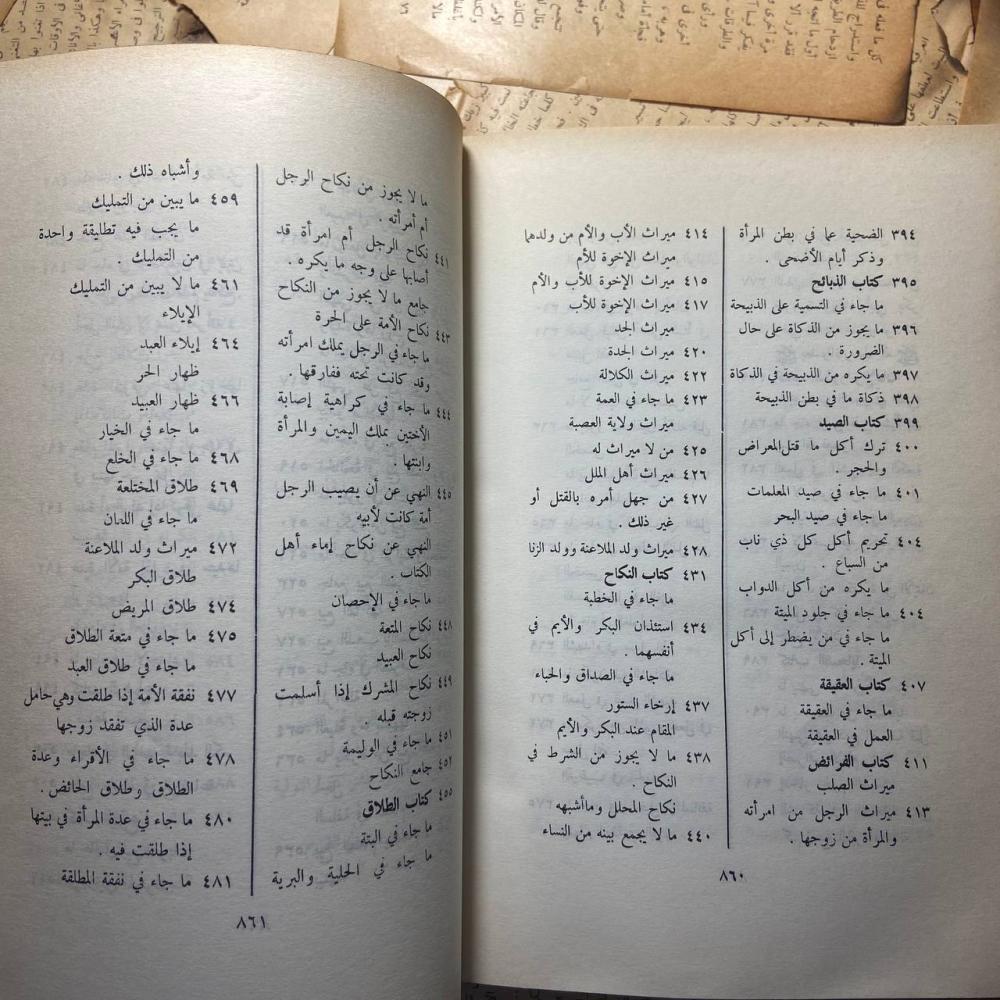 ٣٩٤ الضحية عما في بطن المرأة
وذكر أيام الأضحى .
٣٩٥ كتاب الذبائح
ما جاء في التسمية على الذبيحة
٣٩٦ ما يجوز من الذكاة على حال
الضرورة .
٣٩٧ ما يكره من الذبيحة في الذكاة
٣٩٨ ذكاة ما في بطن الذبيحة
٣٩٩ كتاب الصيد
٤٠٠ ترك أكل ما قتل المعراض
والحجر .
٤٠١ ما جاء في صيد المعلمات
ما جاء في صيد البحر
٤٠٤ تحريم أكل كل ذي ناب
من السباع .
ما يكره من أكل الدواب
٤٠٤ ما جاء في جلود الميتة
ما جاء في من يضطر إلى أكل
الميتة .
٤٠٧ كتاب العقيقة
ما جاء في العقيقة
العمل في العقيقة
٤١١ كتاب الفرائض
ميراث الصلب
٤١٣ ميراث الرجل من امرأته
والمرأة من زوجها .
٤١٤ ميراث الأب والأم من ولدهما
ميراث الإخوة للأم
٤١٥ ميراث الإخوة للأب والأم
٤١٧ ميراث الإخوة للأب
ميراث الجد
٤٢٠ ميراث الجدة
٤٢٢ ميراث الكلالة
٤٢٣ ما جاء في العمة
ميراث ولاية العصبة
٤٢٥ من لا ميراث له
٤٢٦ ميراث أهل الملل
٤٢٧ من جهل أمره بالقتل أو
غير ذلك .
٤٢٨ ميراث ولد الملاعنة وولد الزنا
٤٣١ كتاب النكاح
ما جاء في الخطبة
٤٣٤ استئذان البكر والأيم في
أنفسهما .
ما جاء في الصداق والحباء
٤٣٧ إرخاء الستور
المقام عند البكر والأيم
٤٣٨ ما لا يجوز من الشرط في
النكاح .
نكاح المحلل وما أشبهه
٤٤٠ ما لا يجمع بينه من النساء
٨٦٠
ما لا يجوز من نكاح الرجل
أم أمرأته .
٤٤١ نكاح الرجل أم امرأة قد
أصابها على وجه ما يكره .
جامع ما لا يجوز من النكاح
٤٤٣ نكاح الأمة على الحرة
ما جاء في الرجل يملك امرأته
وقد كانت تحته ففارقها .
٤٤٤ ما جاء في كراهية إصابة
الأختين بملك اليمين والمرأة
وابنتها .
٤٤٥ النهي عن أن يصيب الرجل
أمة كانت لأبيه
النهي عن نكاح إماء أهل
الكتاب .
ما جاء في الإحصان
٤٤٨ نكاح المتعة
نكاح العبيد
٤٤٩ نكاح المشرك إذا أسلمت
زوجته قبله .
٤٥١ ما جاء في الوليمة
٤٥٢ جامع النكاح
٤٥٥ كتاب الطلاق
ما جاء في البتة
ما جاء في الخلية والبرية
وأشباه ذلك .
٤٥٩ ما يبين من التمليك
ما يجب فيه تطليقة واحدة
من التمليك .
٤٦١ ما لا يبين من التمليك
الإيلاء
٤٦٤ إيلاء العبد
ظهار الحر
٤٦٦ ظهار العبيد
ما جاء في الخيار
٤٦٨ ما جاء في الخلع
٤٦٩ طلاق المختلعة
ما جاء في اللعان
٤٧٢ ميراث ولد الملاعنة
طلاق البكر
٤٧٤ طلاق المريض
٤٧٥ ما جاء في متعة الطلاق
ما جاء في طلاق العبد
٤٧٧ نفقة الأمة إذا طلقت وهي حامل
عدة الذي تفقد زوجها
٤٧٨ ما جاء في الأقراء وعدة
الطلاق وطلاق الحائض .
٤٨٠ ما جاء في عدة المرأة في بيتها
إذا طلقت فيه .
٤٨١ ما جاء في نفقة المطلقة
٨٦١